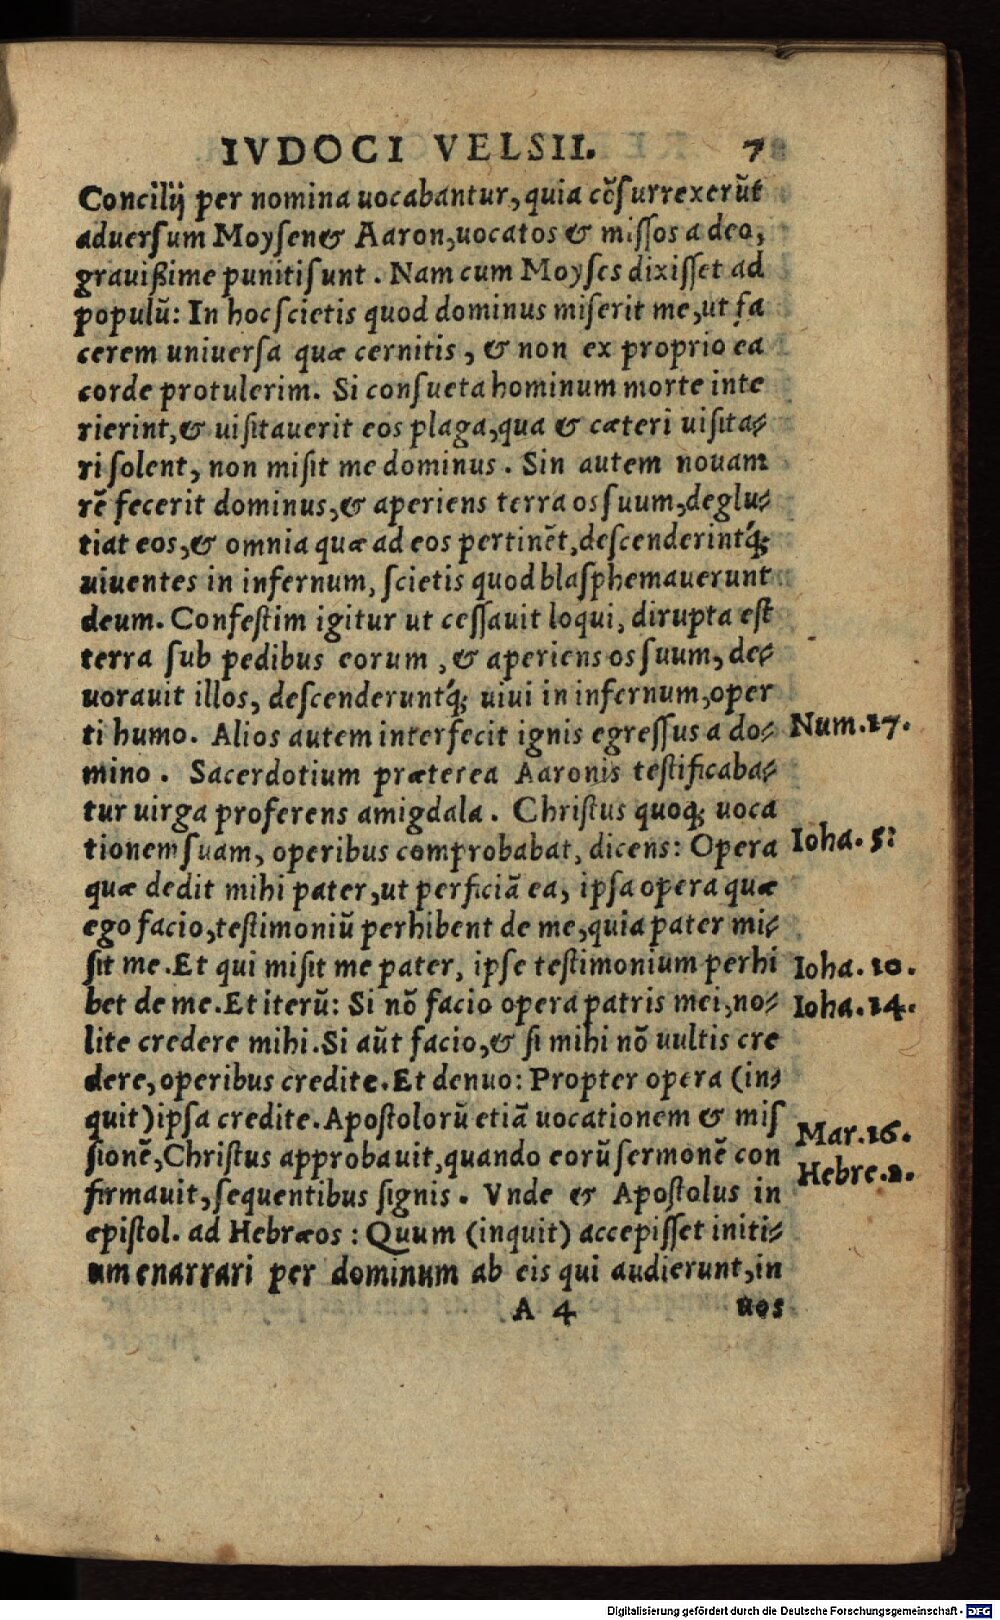 IVDOCI VELSII. 7
Concilij per nomina uocabantur, quia cõſurrexerũt
aduerſum Moyſen & Aaron, uocatos & miſſos a deo,
grauißime puniti ſunt. Nam cum Moyſes dixiſſet ad
populũ: In hoc ſcietis quod dominus miſerit me, ut fa
cerem uniuerſa quæ cernitis, & non ex proprio ea
corde protulerim. Si conſueta hominum morte inte
rierint, & uiſitauerit eos plaga, qua & cæteri uiſita-
ri ſolent, non miſit me dominus. Sin autem nouam
rẽ fecerit dominus, & aperiens terra os ſuum, deglu-
tiat eos, & omnia quæ ad eos pertinẽt, deſcenderintq́;
uiuentes in infernum, ſcietis quod blaſphemauerunt
deum. Confeſtim igitur ut ceſſauit loqui, dirupta eſt
terra ſub pedibus eorum, & aperiens os ſuum, de-
uorauit illos, deſcenderuntq́; uiui in infernum, oper
ti humo. Alios autem interfecit ignis egreſſus a do-
Num. 17.
mino. Sacerdotium præterea Aaronis teſtificaba-
tur uirga proferens amigdala. Chriſtus quoq; uoca
tionem ſuam, operibus comprobabat, dicens: Opera
Ioha. 5:
quæ dedit mihi pater, ut perficiã ea, ipſa opera quæ
ego facio, teſtimoniũ perhibent de me, quia pater mi-
ſit me. Et qui miſit me pater, ipſe teſtimonium perhi
Ioha. 10.
bet de me. Et iterũ: Si nõ facio opera patris mei, no-
Ioha. 14.
lite credere mihi. Si aũt facio, & ſi mihi nõ uultis cre
dere, operibus credite. Et denuo: Propter opera (in-
quit) ipſa credite. Apoſtolorũ etiã uocationem & miſ
Mar. 16.
ſionẽ, Chriſtus approbauit, quando eorũ ſermonẽ con
Hebre. 2.
firmauit, ſequentibus ſignis. Vnde & Apoſtolus in
epiſtol. ad Hebræos: Quum (inquit) accepiſſet initi-
um enarrari per dominum ab eis qui audierunt, in
A 4 uos
Digitalisierung gefördert durch die Deutsche Forschungsgemeinschaft - DFG